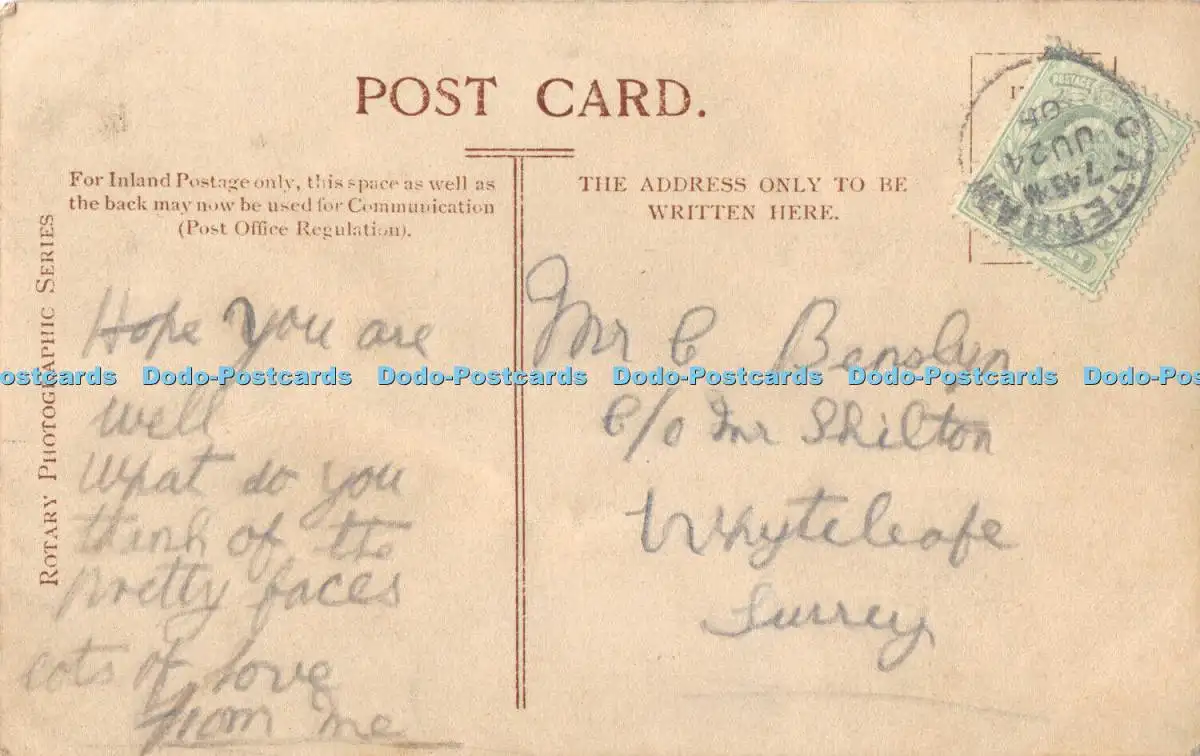 POST CARD.
For Inland Postage only, this space as well as
the back may now be used for Communication
(Post Office Regulation).
THE ADDRESS ONLY TO BE
WRITTEN HERE.
ROTARY PHOTOGRAPHIC SERIES
POSTAGE
CATERHAM
7.45 PM
JU 24
Hope you are
well
What do you
think of the
pretty faces
lots of love
from me
Mr C Banslyn
C/o Mr Shilton
Whyteleafe
Surrey
ostcards Dodo-Postcards Dodo-Postcards Dodo-Postcards Dodo-Postcards Dodo-Pos